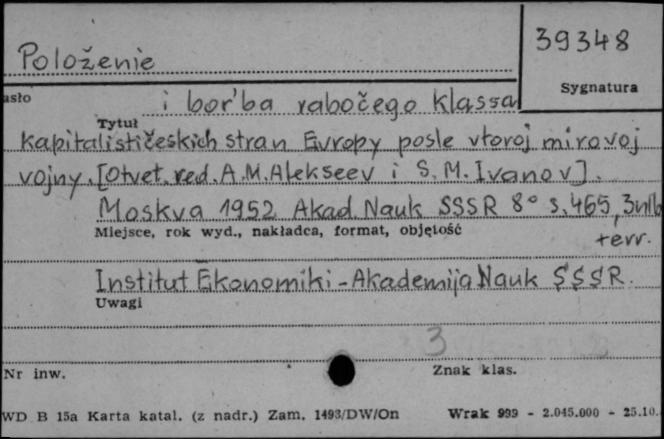 39348
Položenie
Sygnatura
asło
i bor'ba rabočego klassa
Tytuł
kapitalističeskich stran Evropy posle vtoroj mirovoj
vojny. [Otvet. red. A.M. Alekseev i S.M. Ivanov].
Moskva 1952 Akad. Nauk SSSR 8° s. 465, 3nlb
Miejsce, rok wyd., nakładca, format, objętość
+err.
Institut Ekonomiki - Akademija Nauk SSSR.
Uwagi
3
Nr inw.
Znak klas.
WD B 15a Karta katal. (z nadr.) Zam. 1493/DW/On
Wrak 999 - 2.045.000 - 25.10.